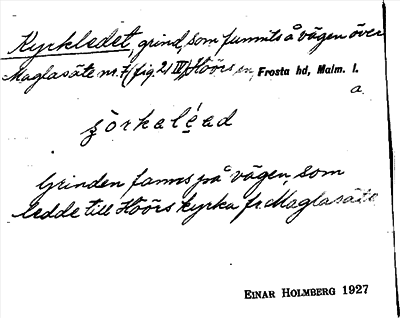 Kyrkledet, grind, som funnits å vägen över
Maglasäte nr. 7 (fig. 21 IV), Höörs sn, Frosta hd, Malm. l.
a.
Grinden fanns på vägen, som
ledde till Höörs kyrka fr. Maglasäte
EINAR HOLMBERG 1927